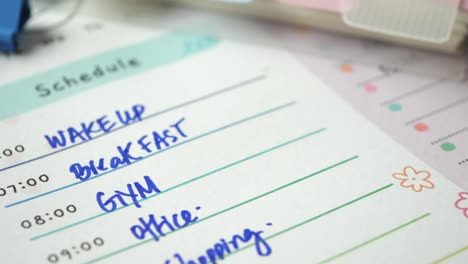 Schedule
:00 WAKE UP
07:00 BreakFAST
08:00 GYM
09:00 office.
shopping.